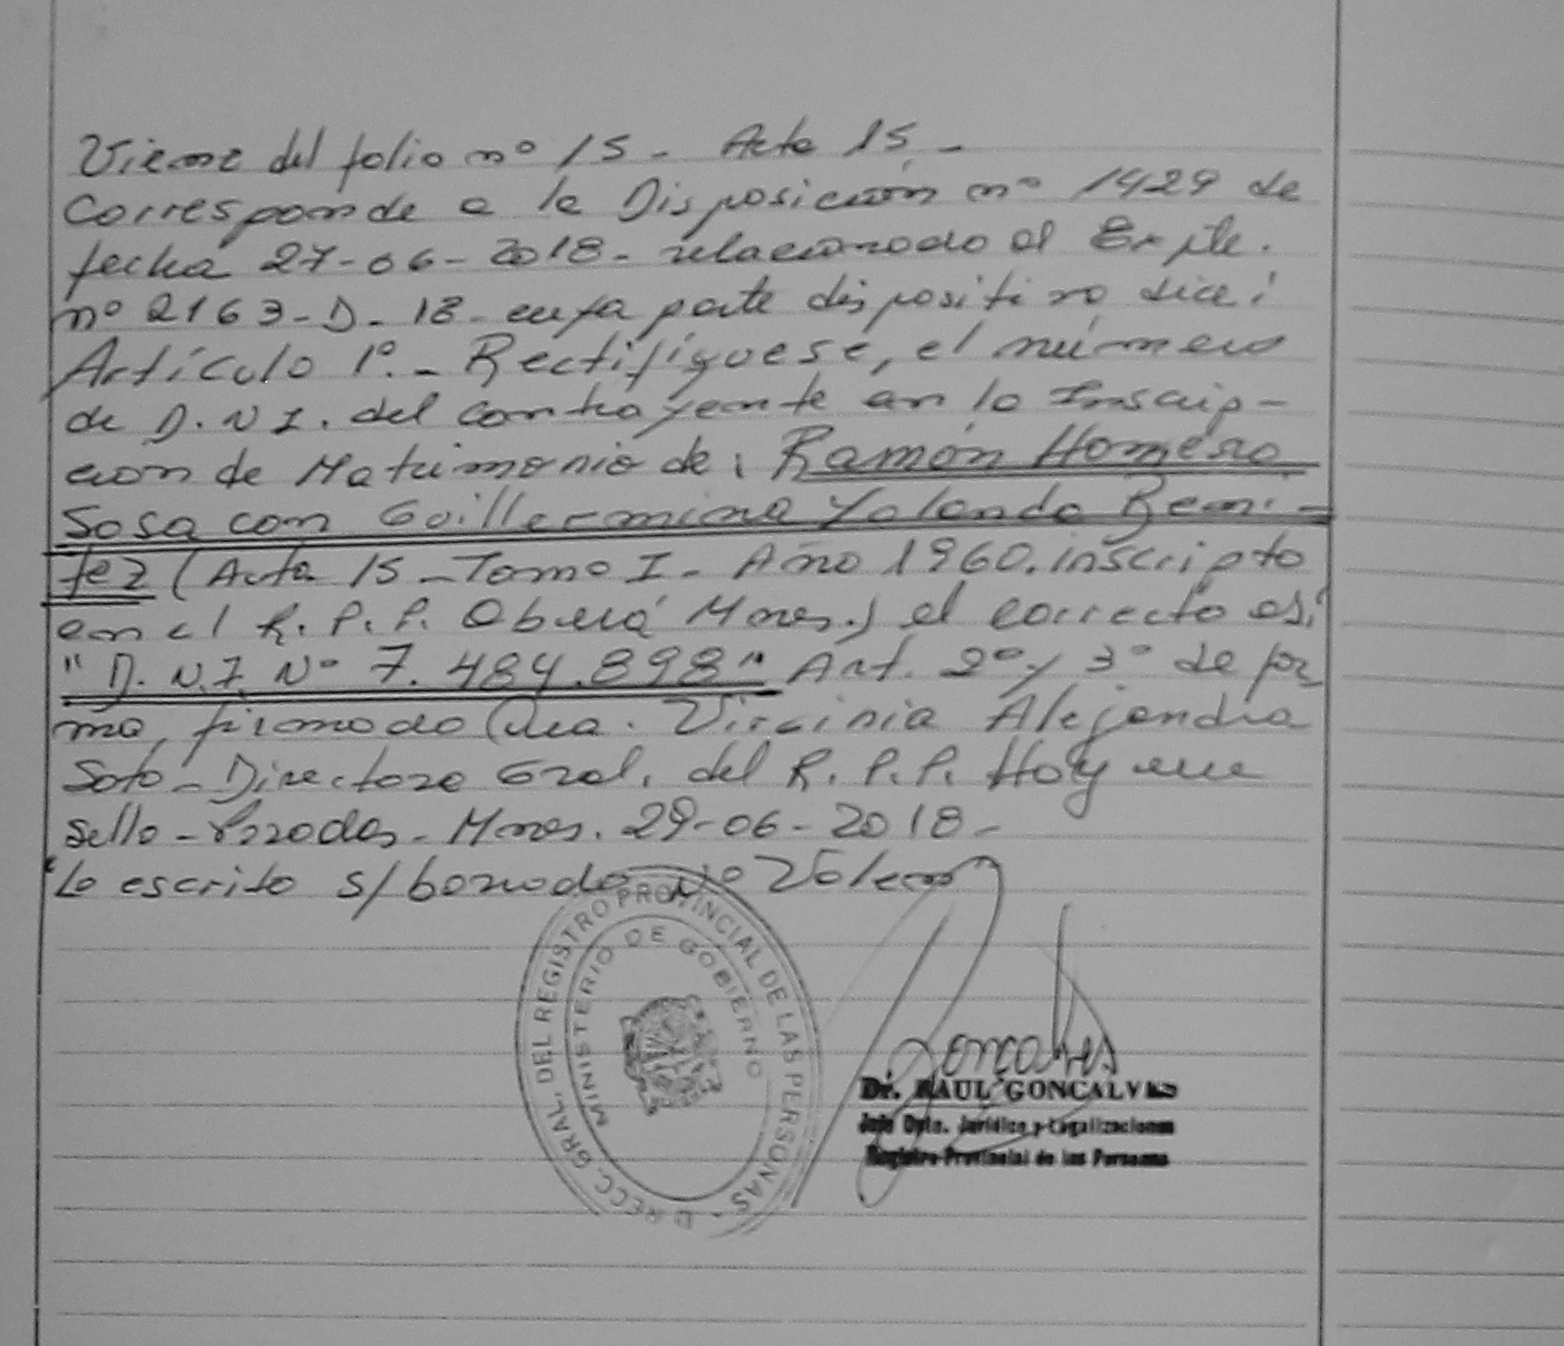 Viene del folio nº 15 - Acta 15 -
Corresponde a la Disposición nº 1429 de
fecha 27-06-2018 - relacionado al Expte.
nº 2163-D-18 - cuya parte dispositiva dice:
Artículo 1º.- Rectifíquese, el número
de D.N.I. del contrayente en la Inscrip-
ción de Matrimonio de: Ramón Homero
Sosa con Guillermina Yolanda Bení-
tez (Acta 15 - Tomo I - Año 1960. inscripto
en el R.P.P. Oberá Mnes.) el correcto es:
"D.N.I. Nº 7.484.898" Art. 2º y 3º de for
ma, firmado Dra. Virginia Alejandra
Soto - Directora Gral. del R.P.P. Hay un
sello - Posadas - Mnes. 29-06-2018 -
Lo escrito s/borrado Nº Valen
DIRECC. GRAL. DEL REGISTRO PROVINCIAL DE LAS PERSONAS -
MINISTERIO DE GOBIERNO
Goncalves
Dr. RAUL GONCALVES
Jefe Dpto. Jurídico y Legalizaciones
Registro Provincial de las Personas